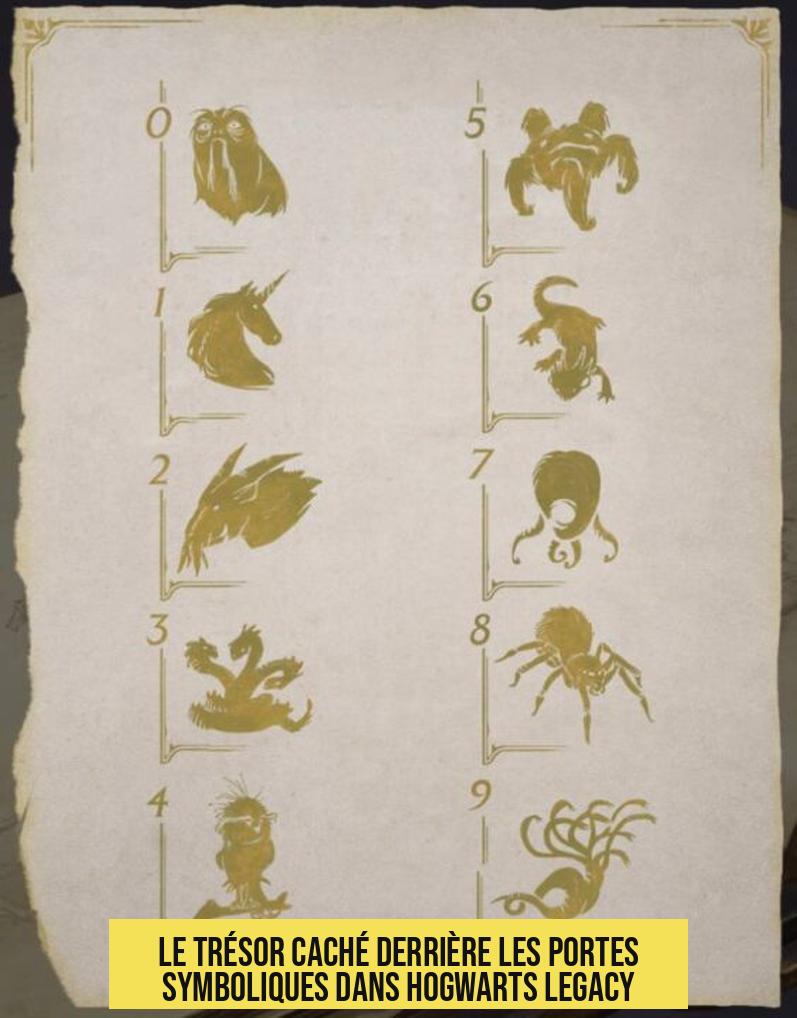 0
5
1
6
2
7
3
8
4
9
LE TRÉSOR CACHÉ DERRIÈRE LES PORTES
SYMBOLIQUES DANS HOGWARTS LEGACY